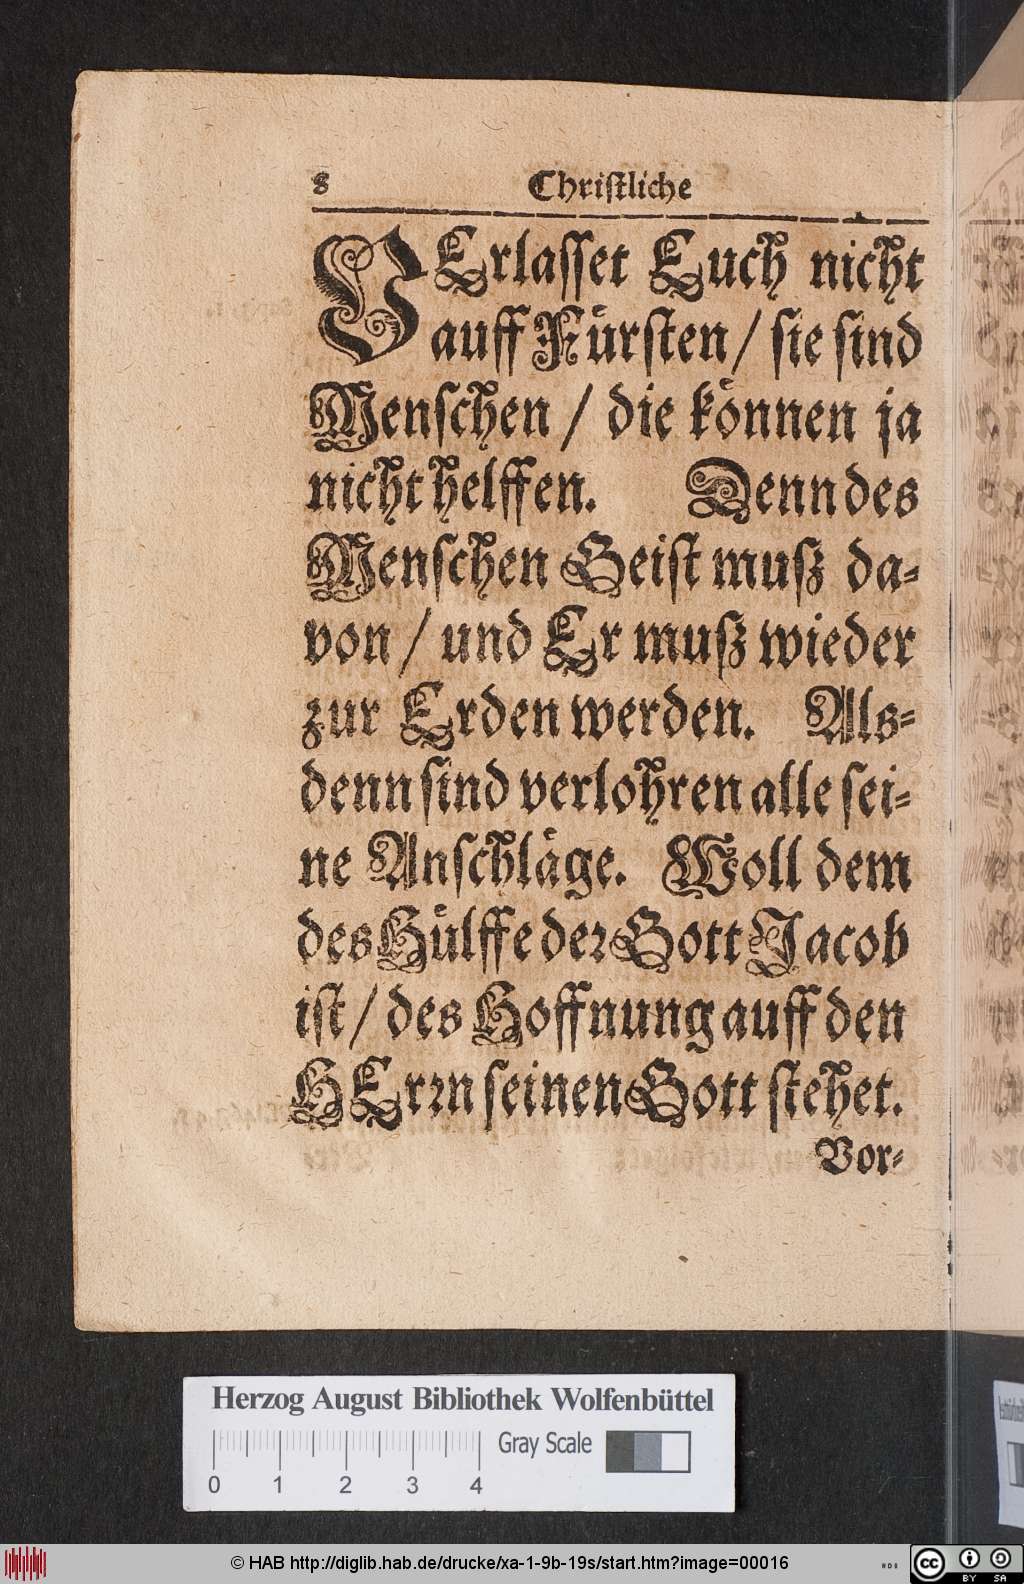 8 Christliche
VErlasset Euch nicht
auff Fürsten / sie sind
Menschen / die können ja
nicht helffen. Denn des
Menschen Geist muß da-
von / und Er muß wieder
zur Erden werden. Als-
denn sind verlohren alle sei-
ne Anschläge. Woll dem
des Hülffe der Gott Jacob
ist / des Hoffnung auff den
HErrn seinen Gott stehet.
Vor-
Herzog August Bibliothek Wolfenbüttel
Gray Scale
0 1 2 3 4
© HAB http://diglib.hab.de/drucke/xa-1-9b-19s/start.htm?image=00016
cc BY SA